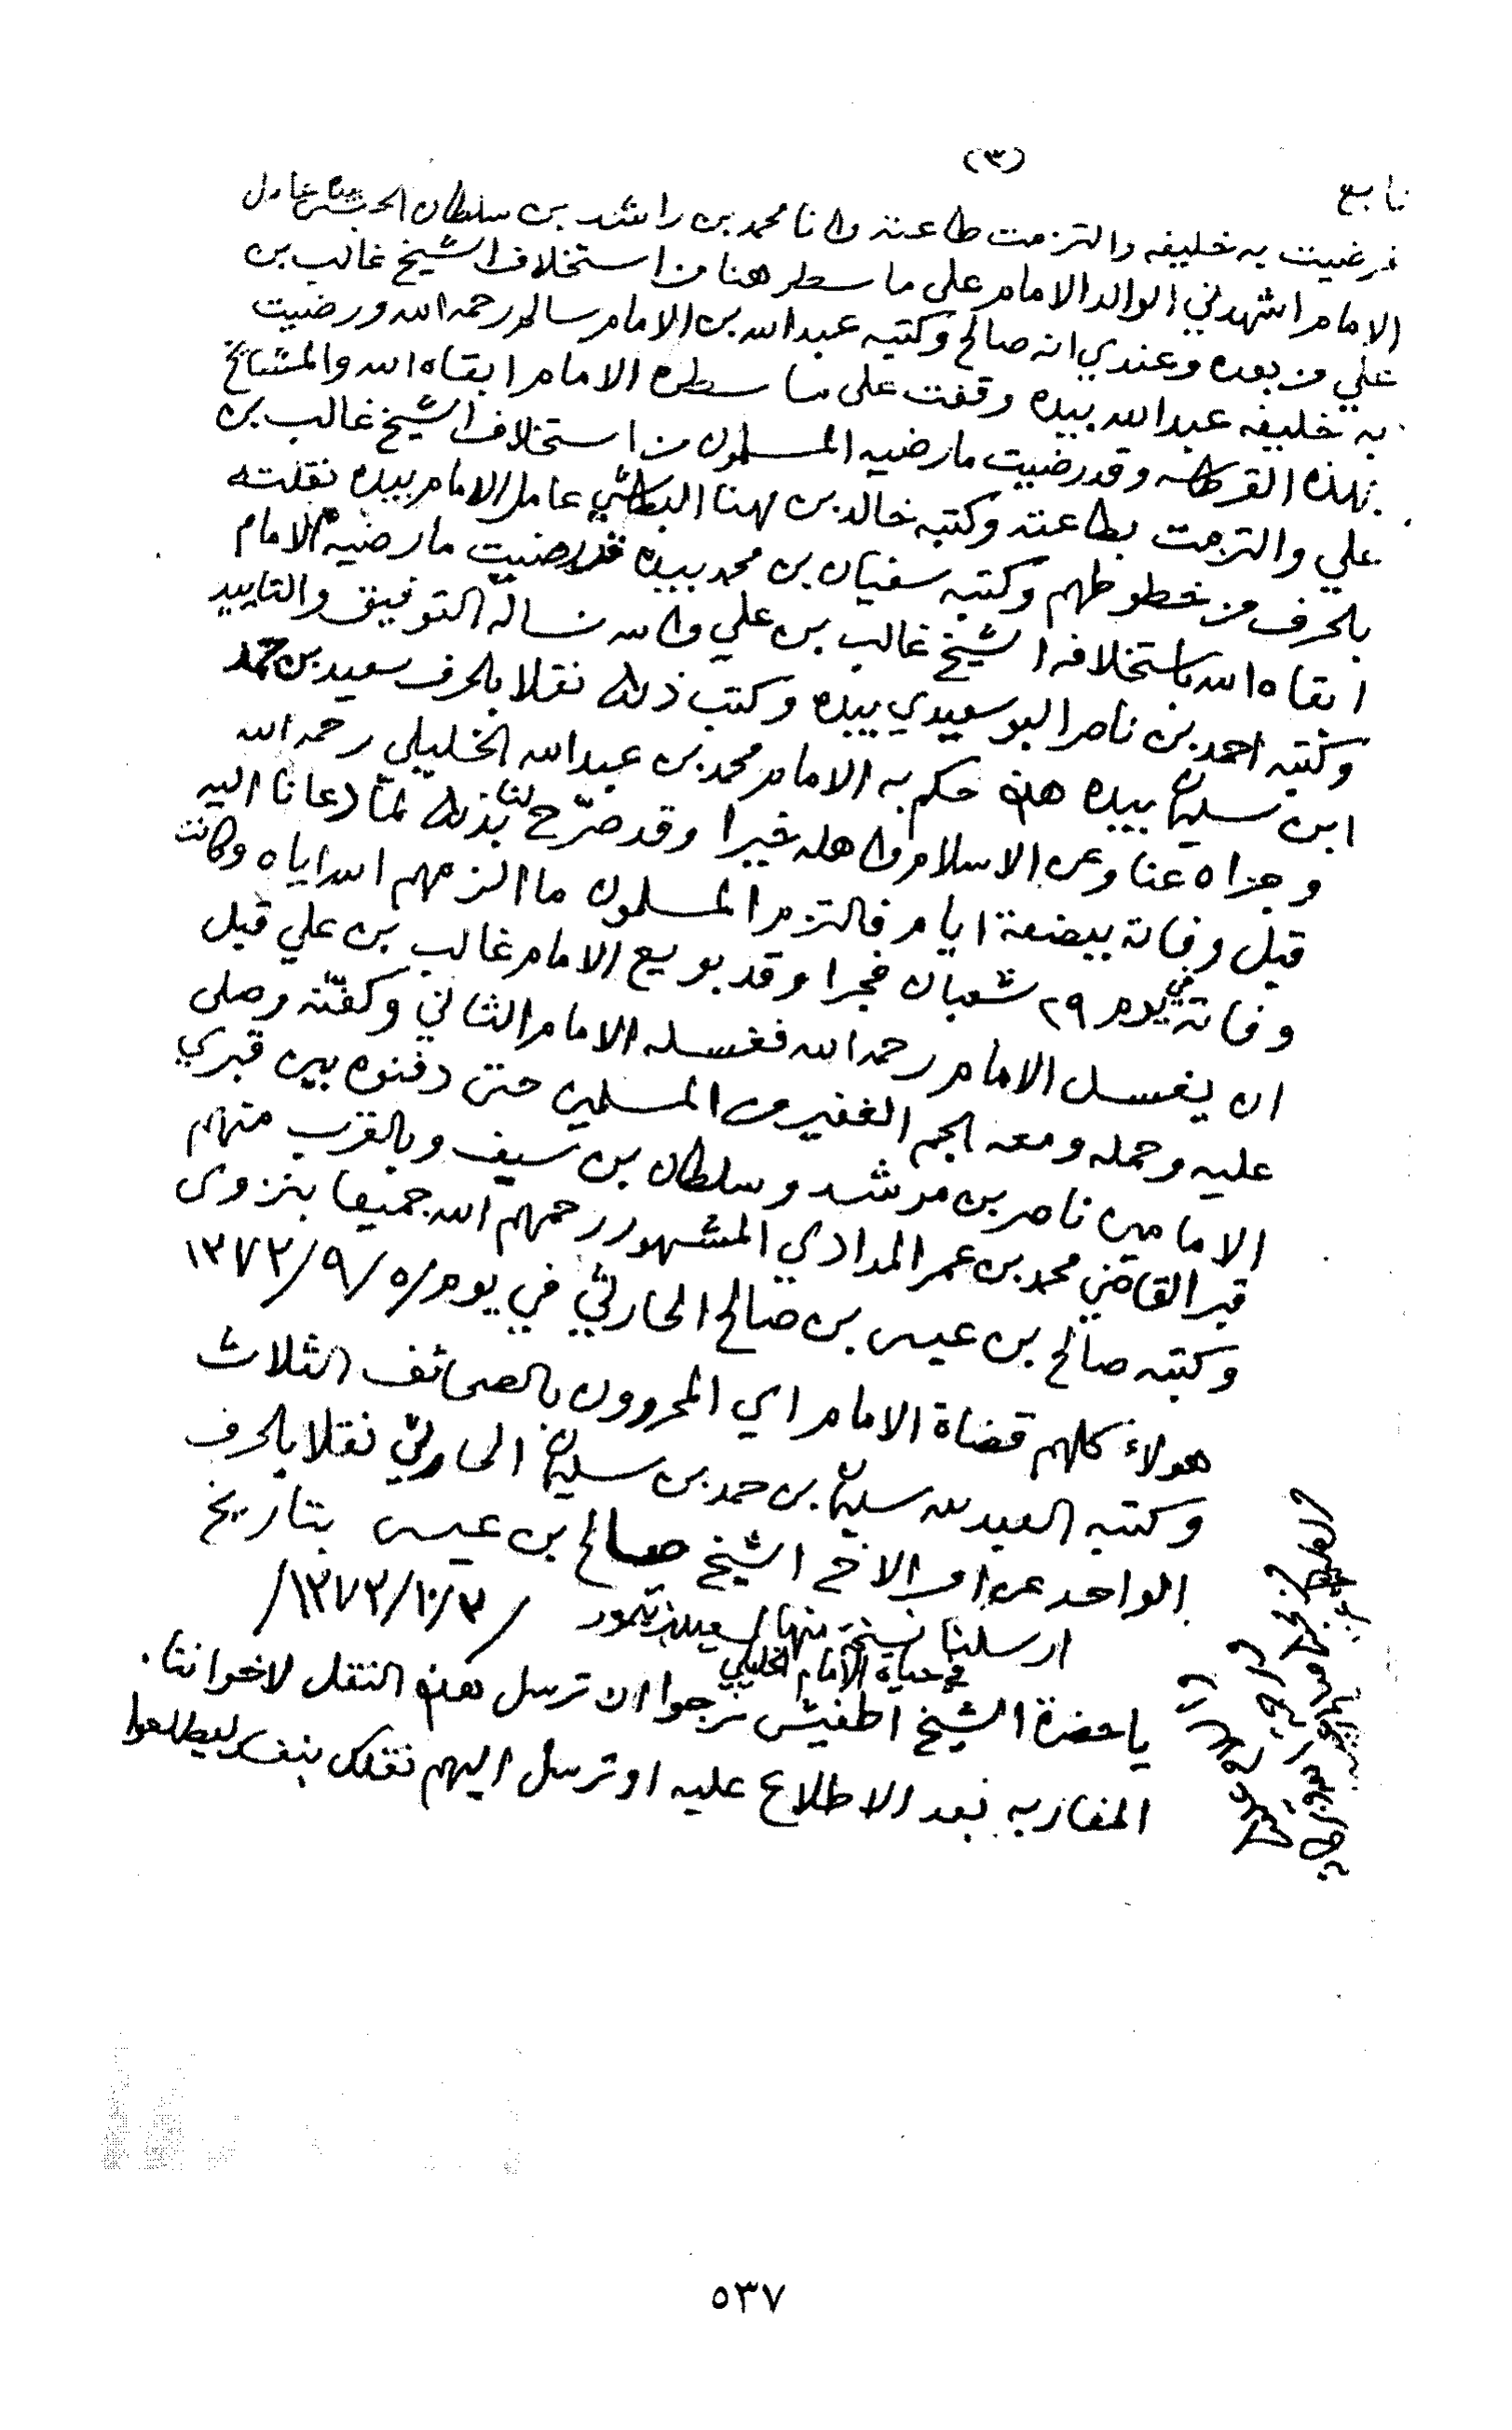 (٣)
تابع
فرضيت به خليفه والتزمت طاعته وانا محمد بن راشد بن سلطان عامل
الامام اشهدني الوالد الامام على ما سطر هنا من استخلاف الشيخ غالب بن
علي من بعده وعندي انه صالح وكتبه عبدالله بن الامام سالم رحمه الله ورضيت
به خليفه عبدالله بيده وقفت على ما سطره الامام ابقاه الله والمشائخ
بهذه القرطاسه وقد رضيت ما رضيه المسلمون من استخلاف الشيخ غالب بن
علي والتزمت بطاعته وكتبه خالد بن مهنا البطاشي عامل الامام بيده نقلته
بالحرف من خطوطهم وكتبه سفيان بن محمد بيده قد رضيت ما رضيه الامام
ابقاه الله باستخلافه الشيخ غالب بن علي والله نساله التوفيق والتاييد
وكتبه احمد بن ناصر البوسعيدي بيده وكتب ذلك نقلا بالحرف سعيد بن حمد
ابن سليمان بيده هذه حكم به الامام محمد بن عبدالله الخليلي رحمه الله
وجزاه عنا وعن الاسلام واهله خيرا وقد صرّح لنا بذلك لمّا دعانا اليه
قبل وفاته ببضعة ايام فالتزم المسلمون ما الزمهم الله اياه وكانت
وفاته في يوم ٢٩ شعبان فجرا وقد بويع الامام غالب بن علي قبل
ان يغسل الامام رحمه الله فغسله الامام الثاني وكفّنه وصلى
عليه وحمله ومعه الجم الغفير من المسلمين حتى دفنوه بين قبري
الامامين ناصر بن مرشد وسلطان بن سيف وبالقرب منهم
قبر القاضي محمد بن عمر المدادي المشهور رحمهم الله جميعا بنزوى
وكتبه صالح بن عيسى بن صالح الحارثي في يوم ٥/ ٩/ ١٣٧٣
هولاء كلهم قضاة الامام اي المحررون بالصحائف الثلاث
وكتبه العبد لله سليمان بن حمد بن سليمان الحارثي نقلا بالحرف
الواحد عن امر الاخ الشيخ صالح بن عيسى بتاريخ
/١٣٧٣/١٠/٣ /
ارسلنا نسخة منها لسعيد بن تيمور
في حياة الامام الخليلي
يا حضرة الشيخ اطفيش نرجوا ان ترسل هذه النقل لاخواننا
المغاربه بعد الاطلاع عليه او ترسل اليهم نقلك بنفسك ليطلعوا
٥٣٧